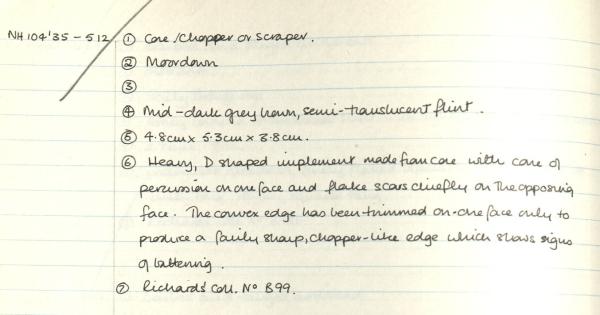 NH 104'35 - 512 ① Core/Chopper or scraper.
② Moordown
③
④ Mid-dark grey brown, semi-translucent flint.
⑤ 4.8cm x 5.3cm x 3.8cm.
⑥ Heavy, D shaped implement made from core with cone of
percussion on one face and flake scars chiefly on the opposing
face. The convex edge has been trimmed on-one face only to
produce a fairly sharp, chopper-like edge which shows signs
of battering.
⑦ Richards' Coll. Nº B99.